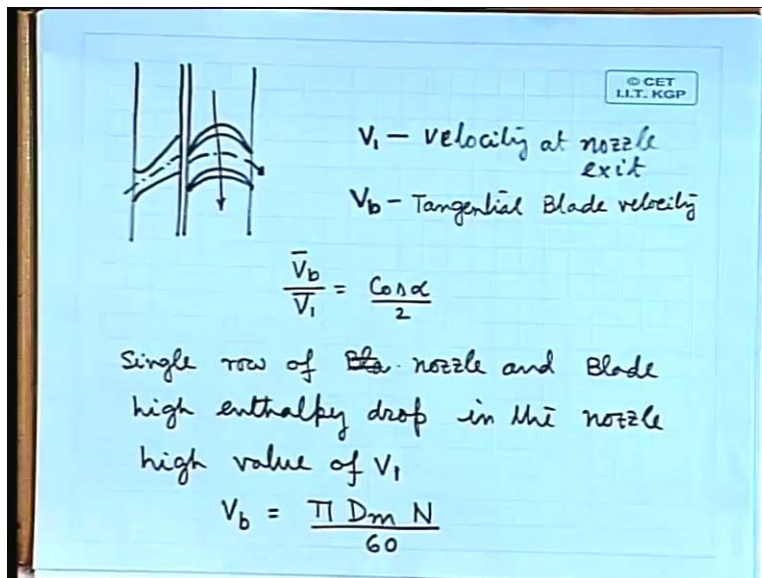 © CET
I.I.T. KGP
V₁ – Velocity at nozzle
exit
V_b – Tangential Blade velocity
V̄_b / V̄₁ = Cos α / 2
Single row of nozzle and Blade
high enthalpy drop in the nozzle
high value of V₁
V_b = π Dm N / 60